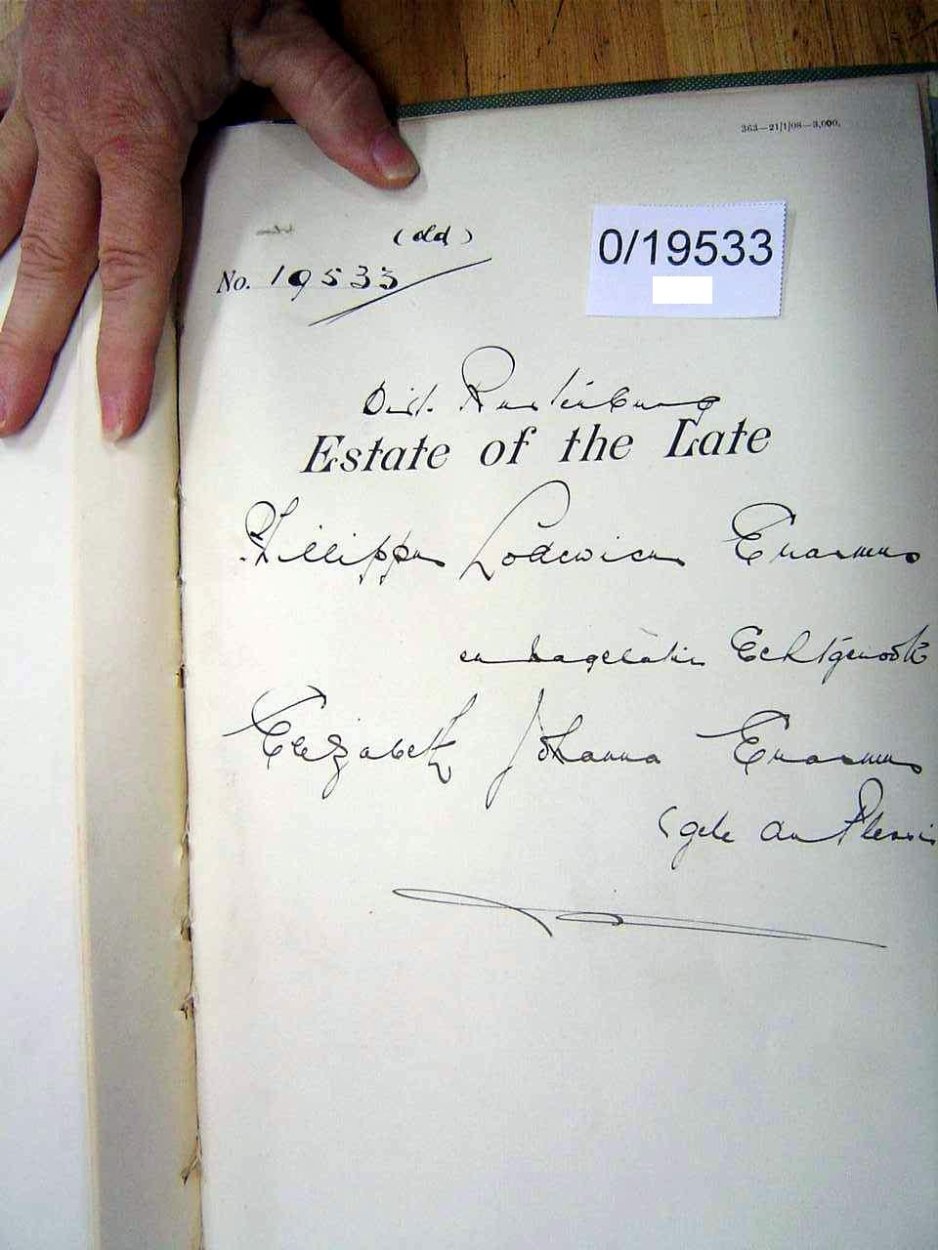 363—21/1/08—3,000.
(old)
No. 19533
0/19533
Dist. Rustenburg
Estate of the Late
Phillippus Lodewicus Erasmus
en nagelatene Echtgenoote
Elizabeth Johanna Erasmus
(geb du Plessis